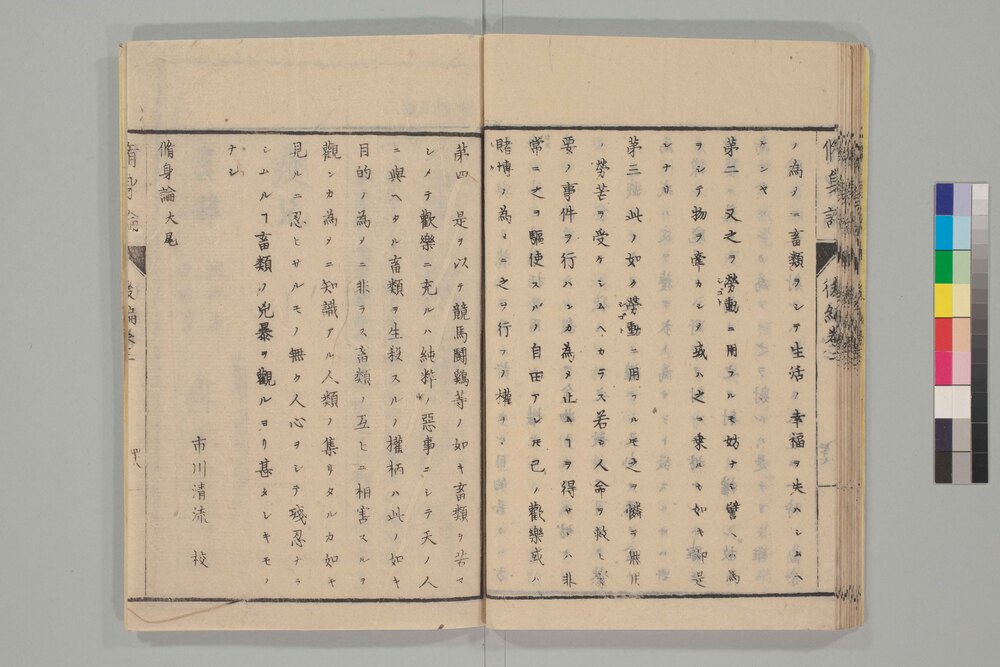 ノ為メニ畜類ヲシテ生活ノ幸福ヲ失ハシムヘ
ケンヤ
第二 又之ヲ勞動ニ用フルモ妨ナシ譬ヘハ為
シゴト
ヲシテ物ヲ牽カシメ或ハ之ニ乗ルモ如キ即是
レナリ
第三 此ノ如ク勞動ニ用フルモ之ヲ憐ミ無用
シゴト
ノ勞苦ヲ受ケシムヘカラス若シ人命ヲ救ヒ緊
要ノ事件ヲ行ハンカ為メ止ムヿヲ得サレハ非
常ニ之ヲ驅使スルノ自由アレモ己ノ歡樂或ハ
賭博ノ為メニ之ヲ行フノ權ナシ
第四 是ヲ以テ競馬鬪鷄等ノ如キ畜類ヲ苦マ
シメテ歡樂ニ充ルハ純粹ノ惡事ニシテ天ノ人
ニ與ヘタル畜類ヲ生殺スルノ權柄ハ此ノ如キ
目的ノ為メニ非ラス畜類ノ互ヒニ相害スルヲ
觀ンカ為メニ知識アル人類ノ集リタルカ如キ
見ルニ忍ヒサルモノ無ク人心ヲシテ殘忍ナラ
シムルヿ畜類ノ兇暴ヲ觀ルヨリ甚タシキモノ
ナシ
市川清流 校
脩身論大尾
脩身論 後編卷二